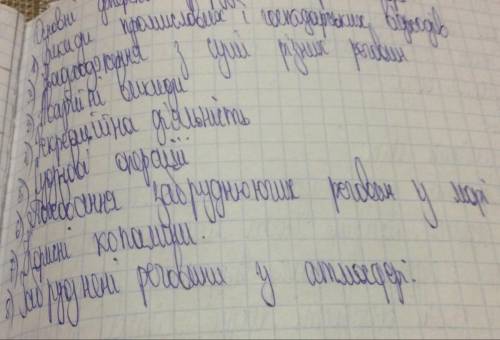 Основні джерела
1) Викиди промислових і господарських відходів
2) Надходження з суші різних речовин
3) Аварійні викиди
4) Рекреаційна діяльність
5) операції
6) Поховання забруднюючих речовин у морі
7) копалини.
8) Забруднені речовини у атмосфері.